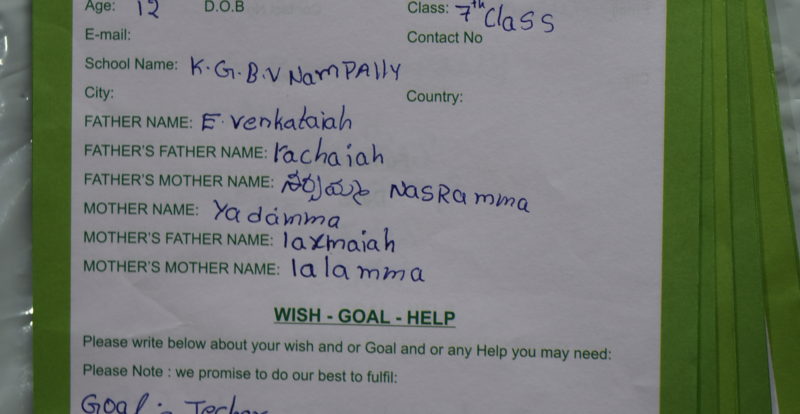 Age: 12 D.O.B Class: 7th Class
E-mail: Contact No
School Name: K.G.B.V NamPAlly
City: Country:
FATHER NAME: E. venkataiah
FATHER'S FATHER NAME: rachaiah
FATHER'S MOTHER NAME: NasRamma
MOTHER NAME: Yadamma
MOTHER'S FATHER NAME: laxmaiah
MOTHER'S MOTHER NAME: lalamma
WISH - GOAL - HELP
Please write below about your wish and or Goal and or any Help you may need:
Please Note : we promise to do our best to fulfil:
Goal :-